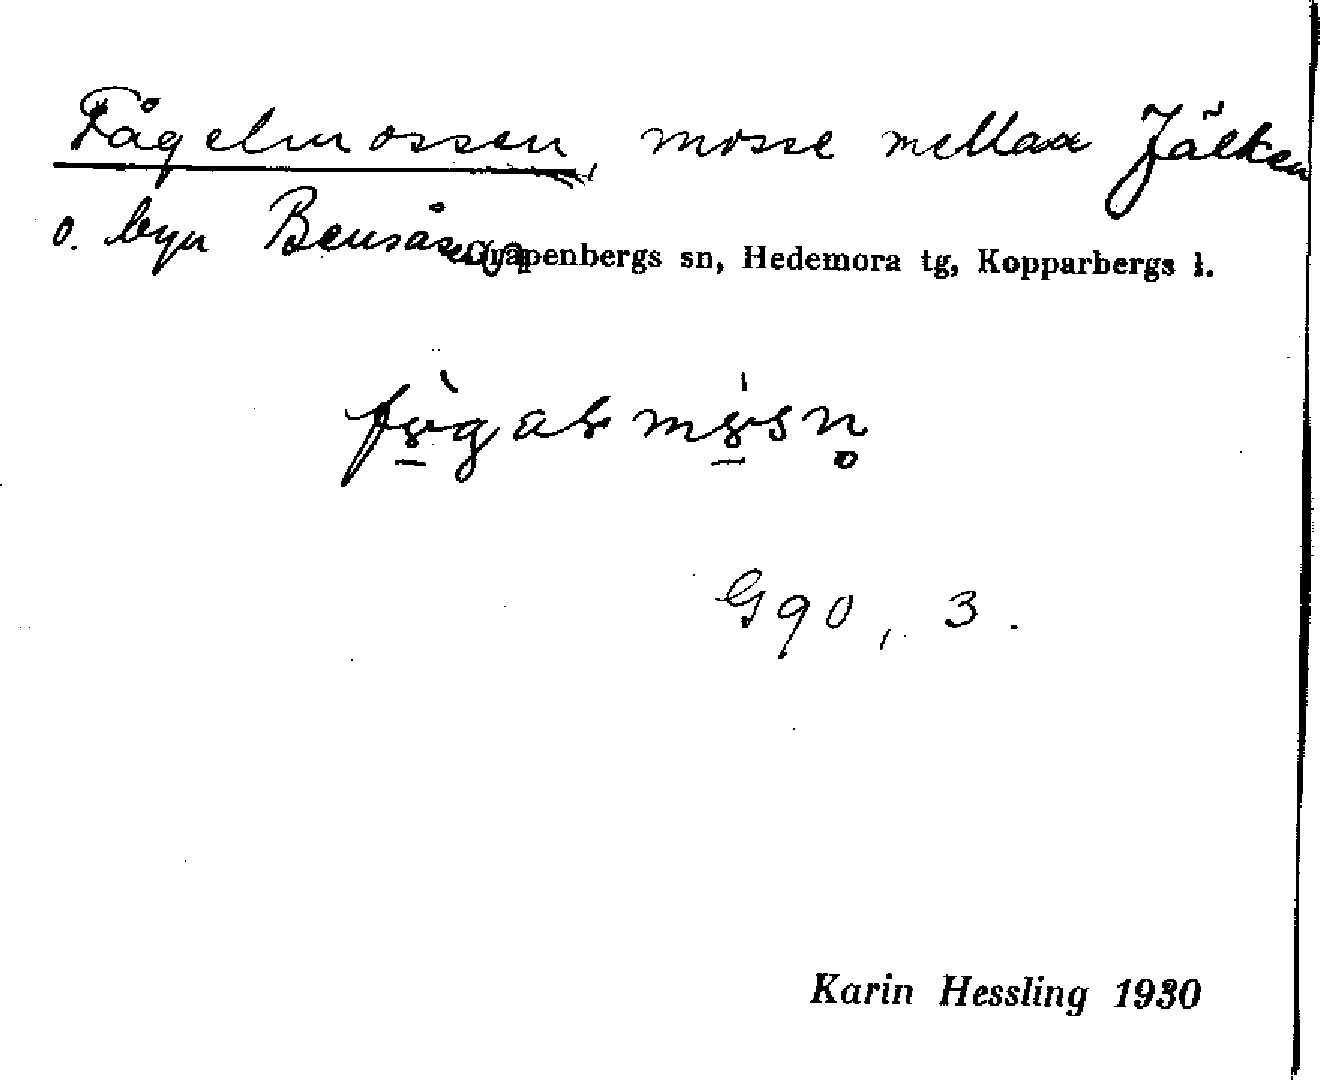 Fågelmossen, mosse mellan Jälken
o. byn Bensåsen
Grapenbergs sn, Hedemora tg, Kopparbergs l.
G 90, 3.
Karin Hessling 1930